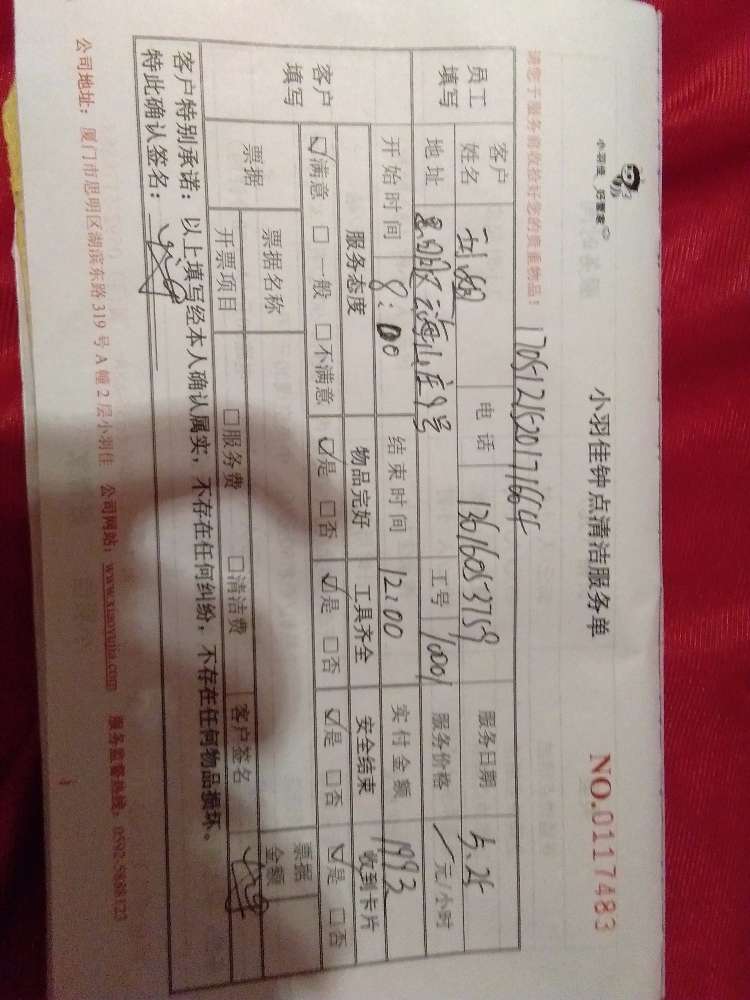 小羽佳 好管家
小羽佳钟点清洁服务单
NO.0117483
请您于服务前收拾好您的贵重物品！
1705121520171664
员工填写
客户姓名 电话 13616053759 服务日期 5.25
地址 海山庄9号 工号 10001 服务价格 / 元/小时
开始时间 8:00 结束时间 12:00 实付金额 1992
客户填写
服务态度 物品完好 工具齐全 安全结束 收到卡片
☑满意 □一般 □不满意 ☑是 □否 ☑是 □否 ☑是 □否 ☑是 □否
票据 票据名称 票据金额
开票项目 □服务费 □清洁费 客户签名
客户特别承诺：以上填写经本人确认属实，不存在任何纠纷，不存在任何物品损坏。
特此确认签名：
公司地址：厦门市思明区湖滨东路319号A幢2层小羽佳 公司网站：www.xiaoyujia.com 服务监督热线：0592-5868123